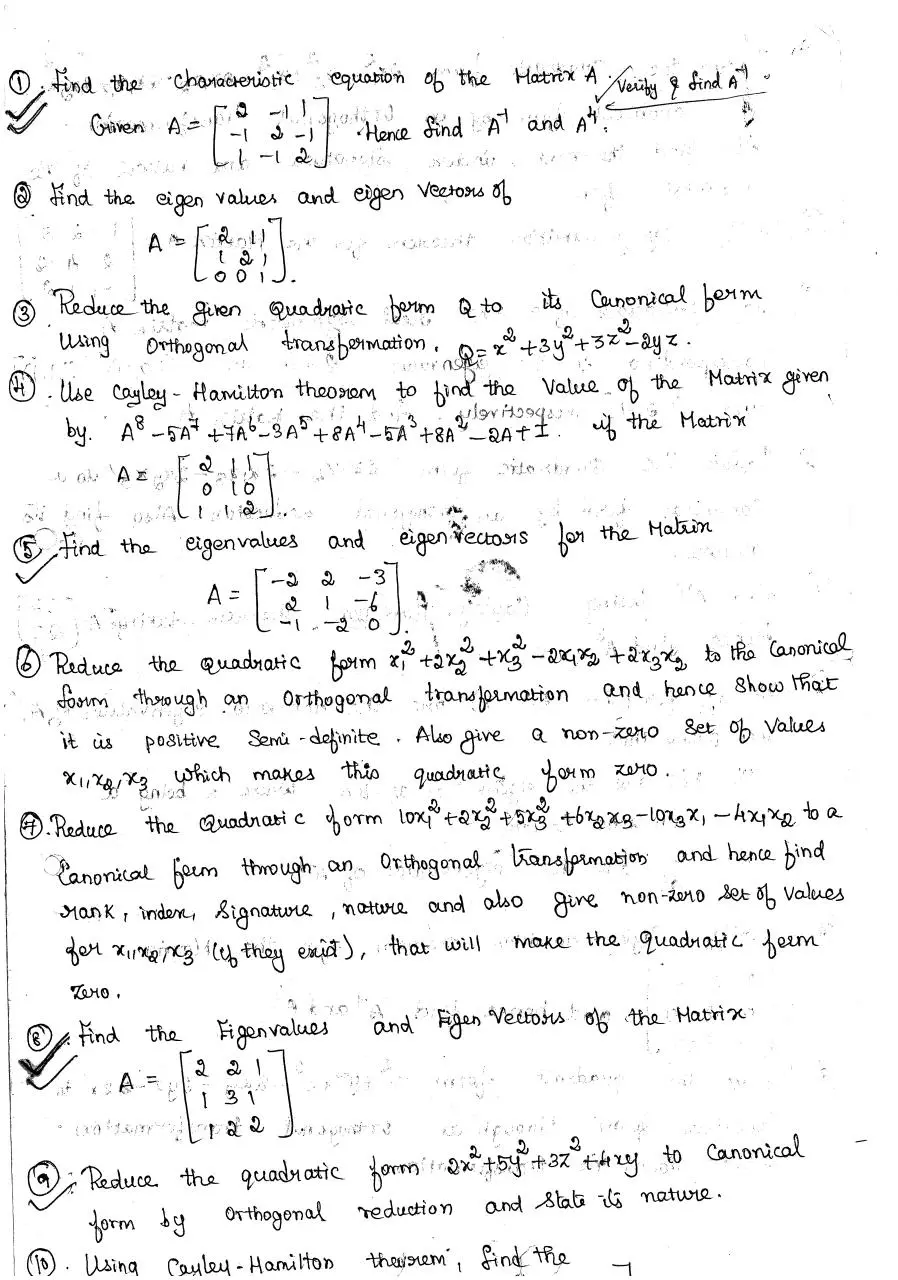 ① Find the characteristic equation of the Matrix A. Verify & find A⁻¹.
Given A = [2 -1 1
-1 2 -1
1 -1 2] . Hence find A⁻¹ and A⁴.
② Find the eigen values and eigen vectors of
A = [2 1 1
1 2 1
0 0 1].
③ Reduce the given Quadratic form Q to its Canonical form
Using Orthogonal transformation. Q = x² + 3y² + 3z² - 2yz.
④. Use Cayley-Hamilton theorem to find the Value of the Matrix given
by. A⁸ - 5A⁷ + 7A⁶ - 3A⁵ + 8A⁴ - 5A³ + 8A² - 2A + I. if the Matrix
A = [2 1 1
0 1 0
1 1 2].
⑤ Find the eigenvalues and eigenvectors for the Matrix
A = [-2 2 -3
2 1 -6
-1 -2 0].
⑥ Reduce the Quadratic form x₁² + 2x₂² + x₃² - 2x₁x₂ + 2x₃x₂ to the Canonical
form through an Orthogonal transformation and hence Show that
it is positive Semi-definite. Also give a non-zero Set of Values
x₁, x₂, x₃ which makes this quadratic form zero.
⑦. Reduce the Quadratic form 10x₁² + 2x₂² + 5x₃² + 6x₂x₃ - 10x₃x₁ - 4x₁x₂ to a
Canonical form through an Orthogonal transformation and hence find
rank, index, Signature, nature and also give non-zero Set of Values
for x₁, x₂, x₃ (if they exist), that will make the Quadratic form
zero.
⑧. Find the Eigenvalues and Eigen Vectors of the Matrix
A = [2 2 1
1 3 1
1 2 2]
⑨. Reduce the quadratic form 2x² + 5y² + 3z² + 4xy to Canonical
form by Orthogonal reduction and State its nature.
⑩. Using Cayley-Hamilton theorem, find the